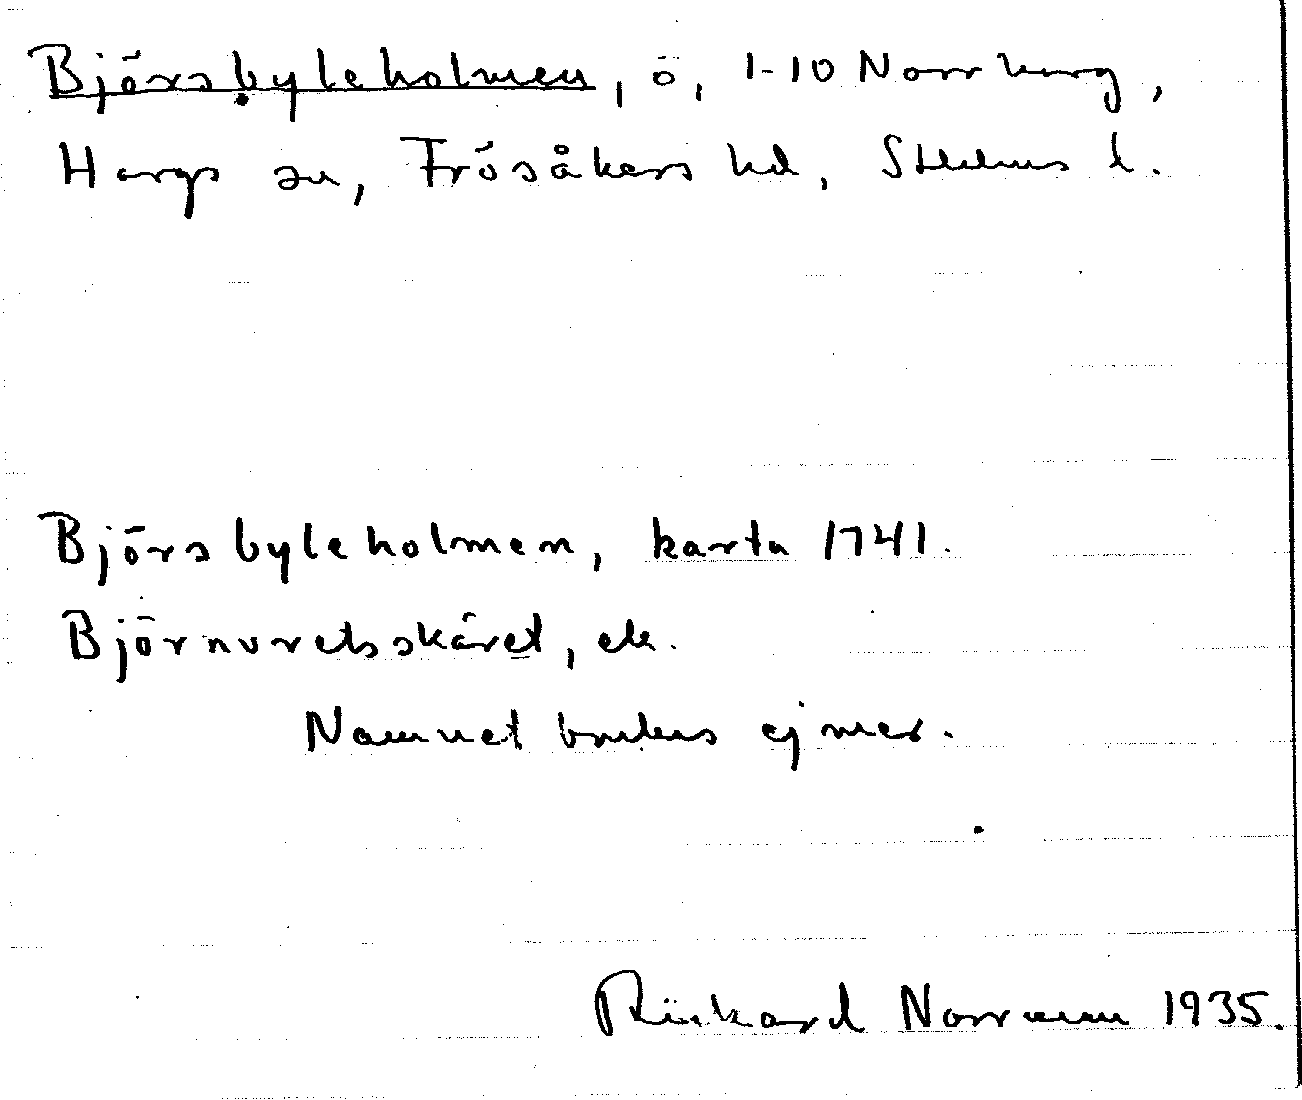 Björsbyleholmen, ö, 1-10 Norrharg,
Hargs sn, Frösåkers hd, Sthlms l.
Björsbyleholmen, karta 1741.
Björnvretsskäret, ek.
Namnet brukas ej mer.
Rickard Norrman 1935.